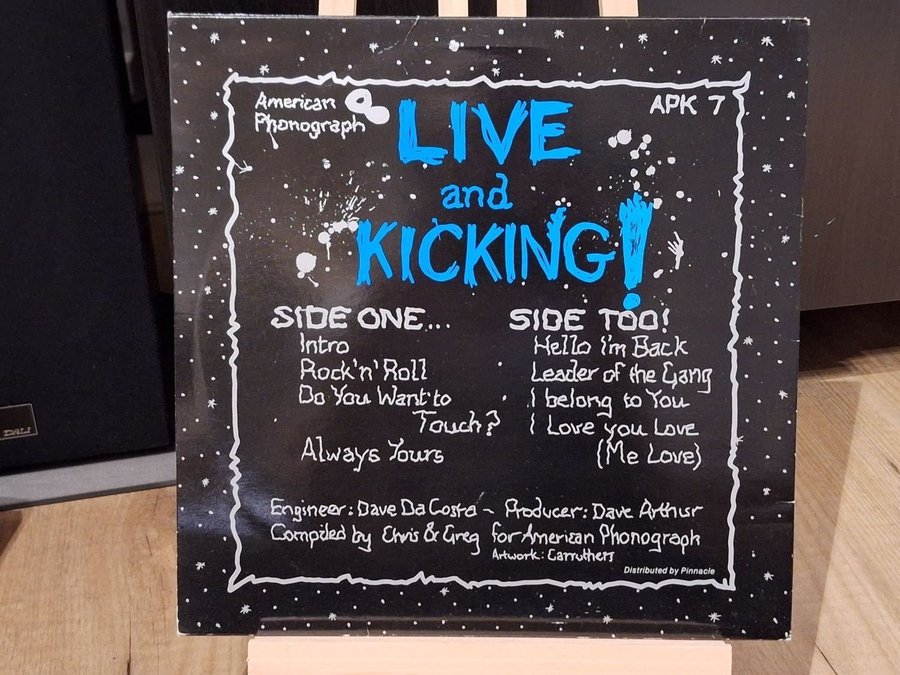 American
Phonograph
APK 7
LIVE
and
KICKING!
SIDE ONE...
Intro
Rock'n'Roll
Do You Want to
Touch?
Always Yours
SIDE TOO!
Hello I'm Back
Leader of the Gang
I belong to You
I Love you Love
(Me Love)
Engineer: Dave Da Costa ~ Producer: Dave Arthur
Compiled by Chris & Greg for American Phonograph
Artwork: Carruthers
Distributed by Pinnacle
DALI